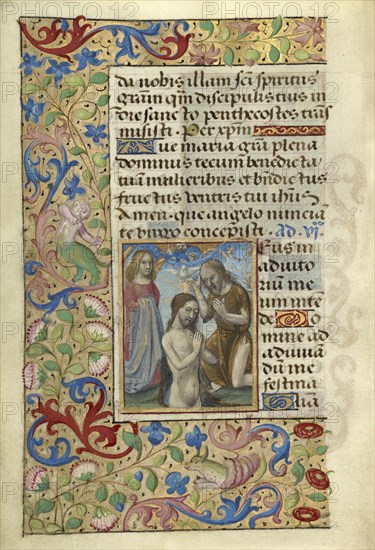 da nobis illam scī spiritus
gratiā qm̄ discipulis tuis in
die sancto penthecostes trās
misisti. Per xpm̄
Aue maria grā plena
dominus tecum benedicta
tu in mulieribus et bn̄dictus
fructus ventris tui ihūs
Amen. que angelo nuncia
te virgo concepisti. ad. vj.
Eus in
adiuto
riū me
um inte
de Do
mine ad
adiuuā
dū me
festina